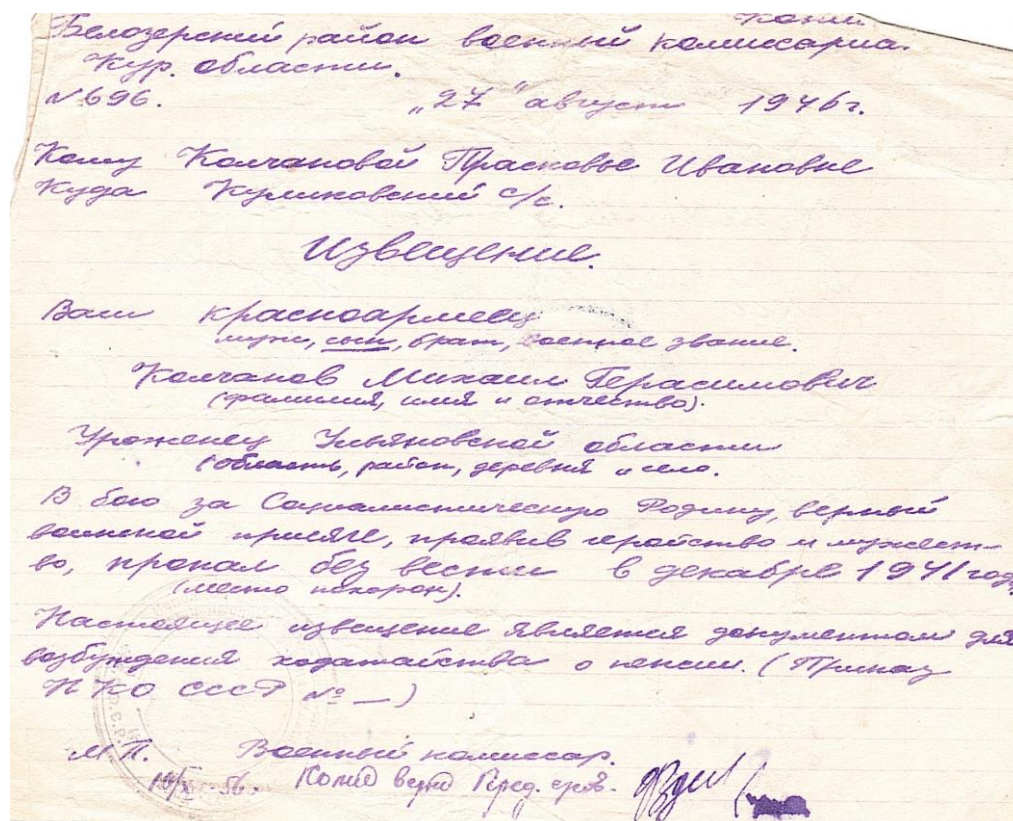 Копия
Белозерский район военный комиссариа.
Кур. области.
№696. „27" август 1946г.
Кому Колчановой Прасковье Ивановне
Куда Куликовский с/с.
Извещение.
Ваш красноармеец
муж, сын, брат, военное звание.
Колчанов Михаил Герасимович
(фамилия, имя и отчество).
Уроженец Ульяновской области
(область, район, деревня и село.
В бою за Социалистическую Родину, верный
воинской присяге, проявив геройство и мужест-
во, пропал без вести в декабре 1941 год
(место похорон).
Настоящее извещение является документом для
возбуждения ходатайства о пенсии. (Приказ
НКО СССР № —)
М.П. Военный комиссар.
56. Копия верна